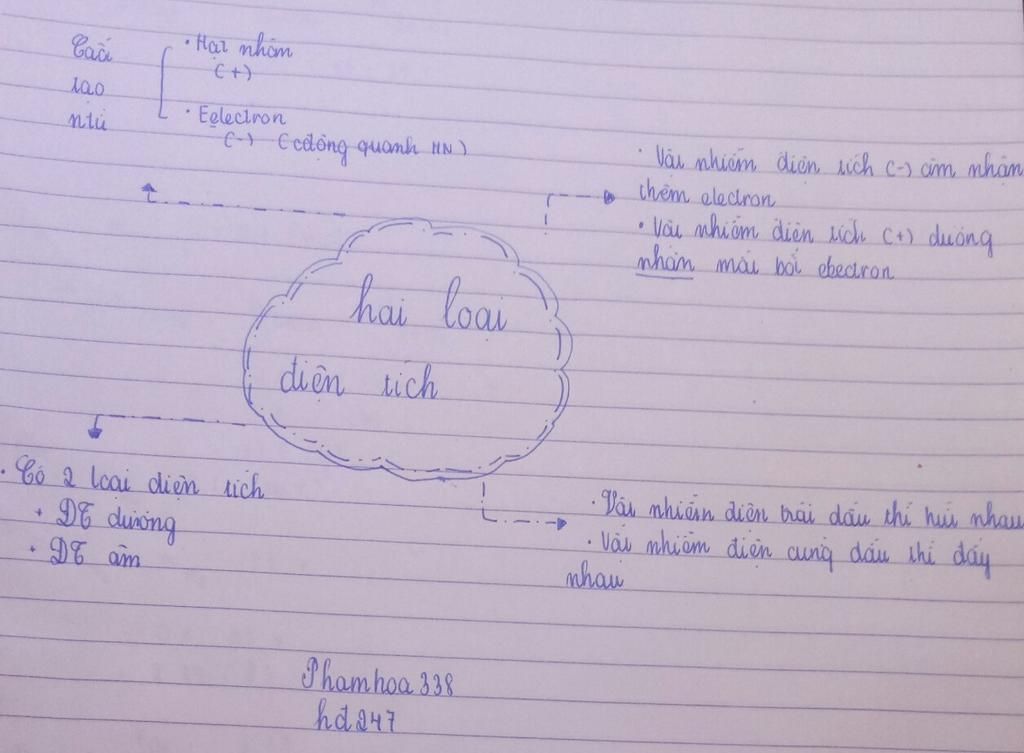 Cấu
tạo
ntử
· Hạt nhân
(+)
· Eelectron
(-) (cđộng quanh HN)
· Vật nhiễm điện tích (-) âm nhận
thêm electron
· Vật nhiễm điện tích (+) dương
nhân mất bớt electron
hai loại
điện tích
· Có 2 loại điện tích
+ ĐT dương
· ĐT âm
· Vật nhiễm điện trái dấu thì hút nhau
· Vật nhiễm điện cùng dấu thì đẩy
nhau
Phamhoa338
hđ247